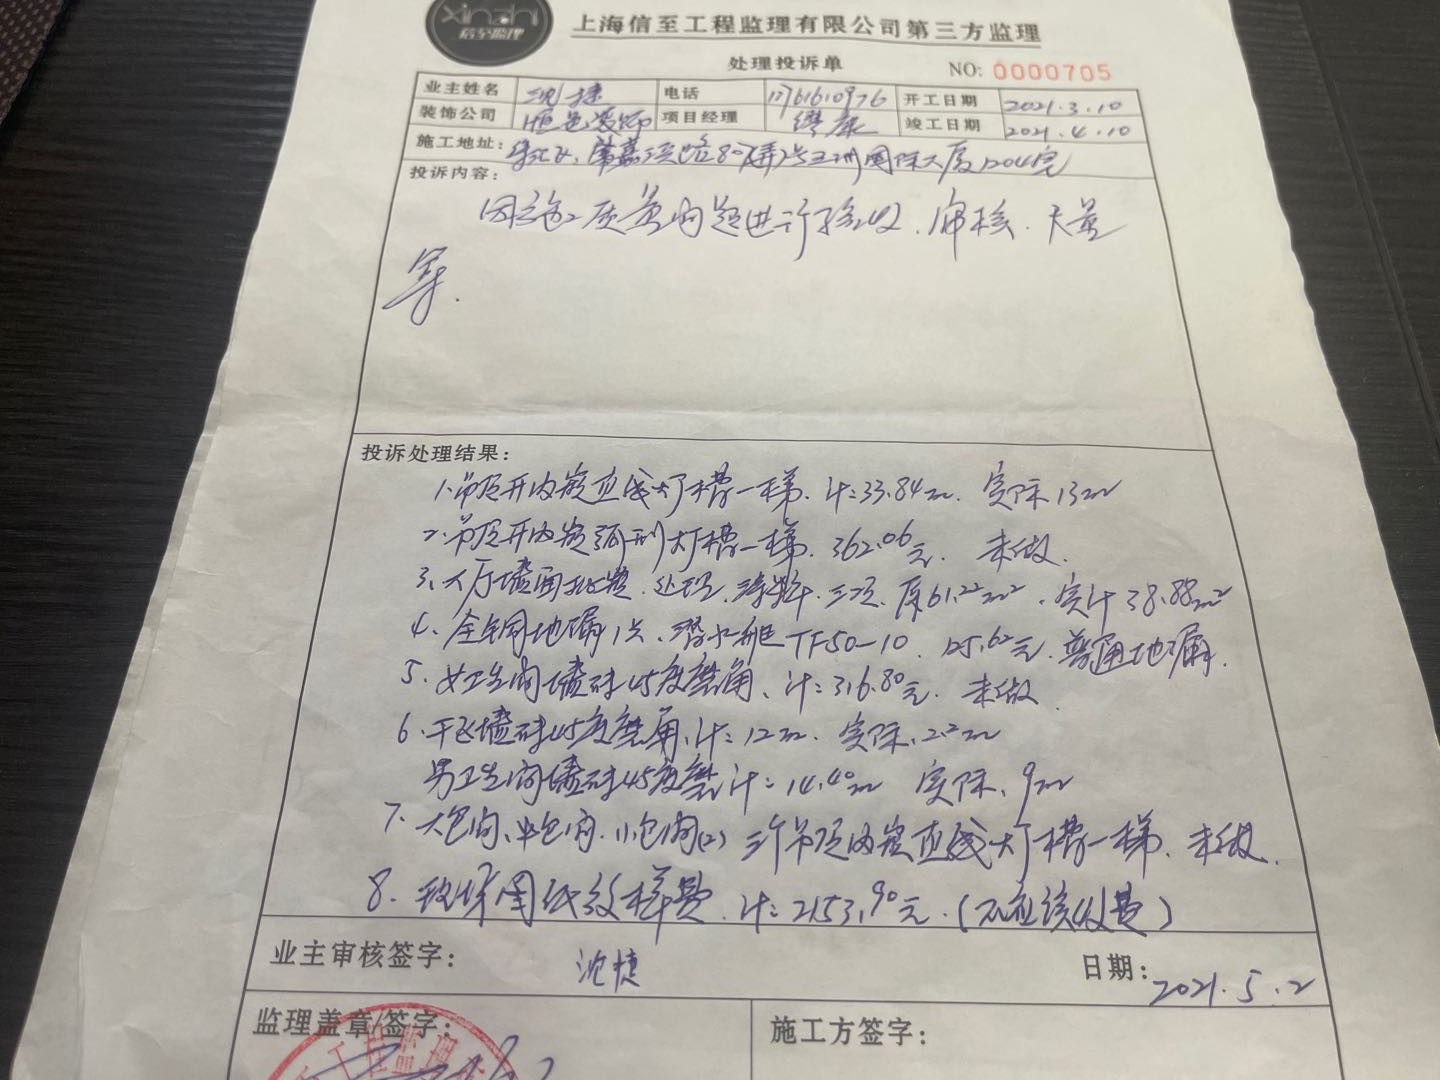 xinzhi
信至监理
上海信至工程监理有限公司第三方监理
处理投诉单 NO: 0000705
业主姓名 沈捷 电话 17761610976 开工日期 2021.3.10
装饰公司 装饰 项目经理 竣工日期 2021.4.10
施工地址: 肇嘉浜路807弄2号亚洲国际大厦1204室
投诉内容:
因施工质量问题进行验收、审核、丈量
等.
投诉处理结果:
1、吊顶开内嵌直线灯槽一梯. 计:33.84m. 实际13m
2、吊顶开内嵌弧形灯槽一梯. 362.06元. 未做.
3、大厅墙面批嵌、处理、涂料、三项. 原61.22m². 实计38.88m²
4、全铜地漏1只、潜水艇TF50-10. 125.62元. 普通地漏.
5、女卫生间墙砖45度磨角、计:316.80元. 未做.
6、干区墙砖45度磨角、计:12m. 实际、2.2m
男卫生间墙砖45度磨 计:14.40m 实际、9m
7、大包间、中包间、小包间(2) 三个吊顶内嵌直线灯槽一梯. 未做.
8、现场图纸放样费. 计:2153.90元.(不应该收费)
业主审核签字: 沈捷 日期: 2021.5.2
监理盖章/签字: 施工方签字:
工程监理